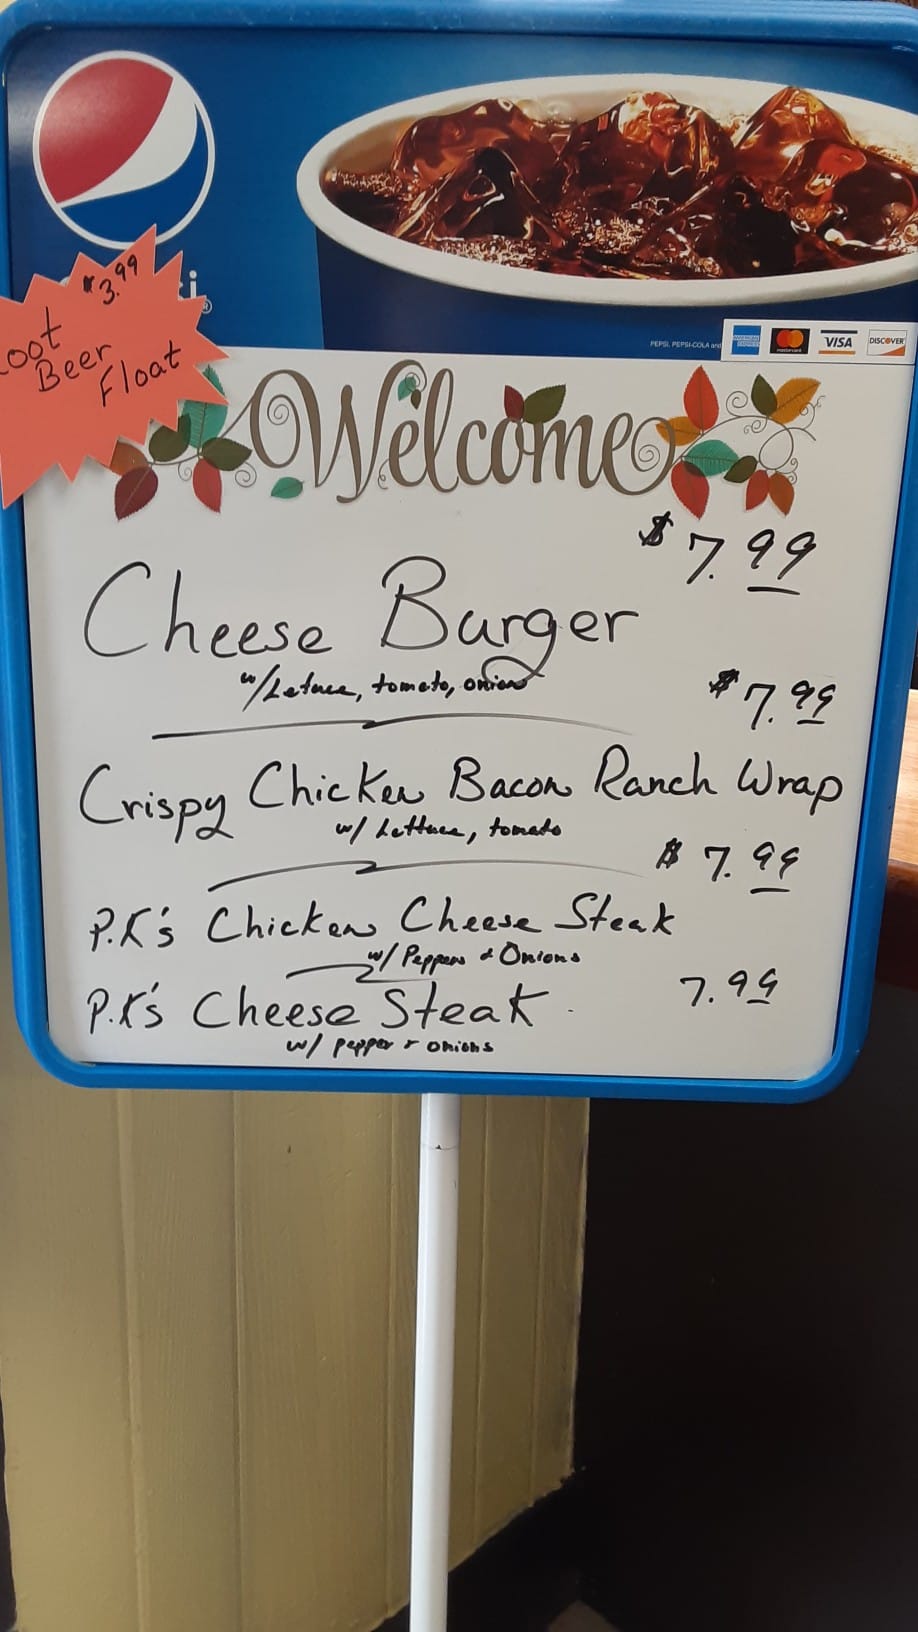 $3.99
oot
Beer
Float
i
PEPSI, PEPSI-COLA and
AMERICAN EXPRESS
mastercard
VISA
DISCOVER
Welcome
$7.99
Cheese Burger
w/Letuce, tomato, onion
$7.99
Crispy Chicken Bacon Ranch Wrap
w/ Lettuce, tomato
$7.99
P.K's Chicken Cheese Steak
w/ Peppers & Onions
7.99
P.K's Cheese Steak
w/ pepper & onions